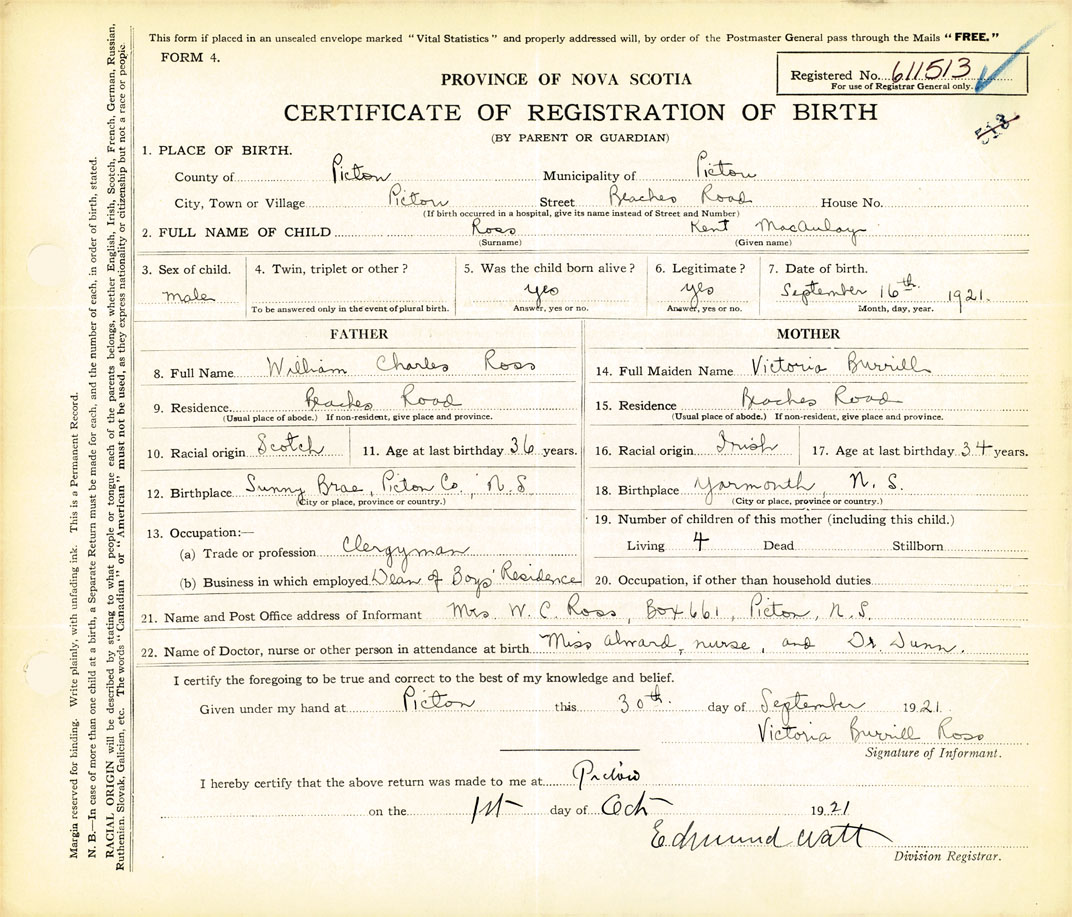 This form if placed in an unsealed envelope marked "Vital Statistics" and properly addressed will, by order of the Postmaster General pass through the Mails "FREE."
FORM 4.
Registered No. 611513
For use of Registrar General only.
513
PROVINCE OF NOVA SCOTIA
CERTIFICATE OF REGISTRATION OF BIRTH
(BY PARENT OR GUARDIAN)
1. PLACE OF BIRTH.
County of Picton Municipality of Picton
City, Town or Village Picton Street Beaches Road House No.
(If birth occurred in a hospital, give its name instead of Street and Number)
2. FULL NAME OF CHILD Ross Kent MacAulay
(Surname) (Given name)
3. Sex of child. 4. Twin, triplet or other? 5. Was the child born alive? 6. Legitimate? 7. Date of birth.
male yes yes September 16th 1921.
To be answered only in the event of plural birth. Answer, yes or no. Answer, yes or no. Month, day, year.
FATHER MOTHER
8. Full Name William Charles Ross 14. Full Maiden Name Victoria Burrill
9. Residence Beaches Road 15. Residence Beaches Road
(Usual place of abode.) If non-resident, give place and province. (Usual place of abode.) If non-resident, give place and province.
10. Racial origin Scotch 11. Age at last birthday 36 years. 16. Racial origin Irish 17. Age at last birthday 34 years.
12. Birthplace Sunny Brae, Picton Co., N. S. 18. Birthplace Yarmouth, N. S.
(City or place, province or country.) (City or place, province or country.)
13. Occupation:— 19. Number of children of this mother (including this child.)
(a) Trade or profession Clergyman Living 4 Dead Stillborn
(b) Business in which employed Dean of Boys' Residence 20. Occupation, if other than household duties
21. Name and Post Office address of Informant Mrs. W. C. Ross, Box 661, Picton, N. S.
22. Name of Doctor, nurse or other person in attendance at birth Miss Alward, nurse, and Dr. Dunn.
I certify the foregoing to be true and correct to the best of my knowledge and belief.
Given under my hand at Picton this 30th. day of September 1921.
Victoria Burrill Ross
Signature of Informant.
I hereby certify that the above return was made to me at Picton
on the 1st day of Oct 1921
Edmund Watt
Division Registrar.
Margin reserved for binding. Write plainly, with unfading ink. This is a Permanent Record.
N. B.—In case of more than one child at a birth, a Separate Return must be made for each, and the number of each, in order of birth, stated.
RACIAL ORIGIN will be described by stating to what people or tongue each of the parents belongs, whether English, Irish, Scotch, French, German, Russian,
Ruthenian, Slovak, Galician, etc. The words "Canadian" or "American" must not be used, as they express nationality or citizenship but not a race or people.